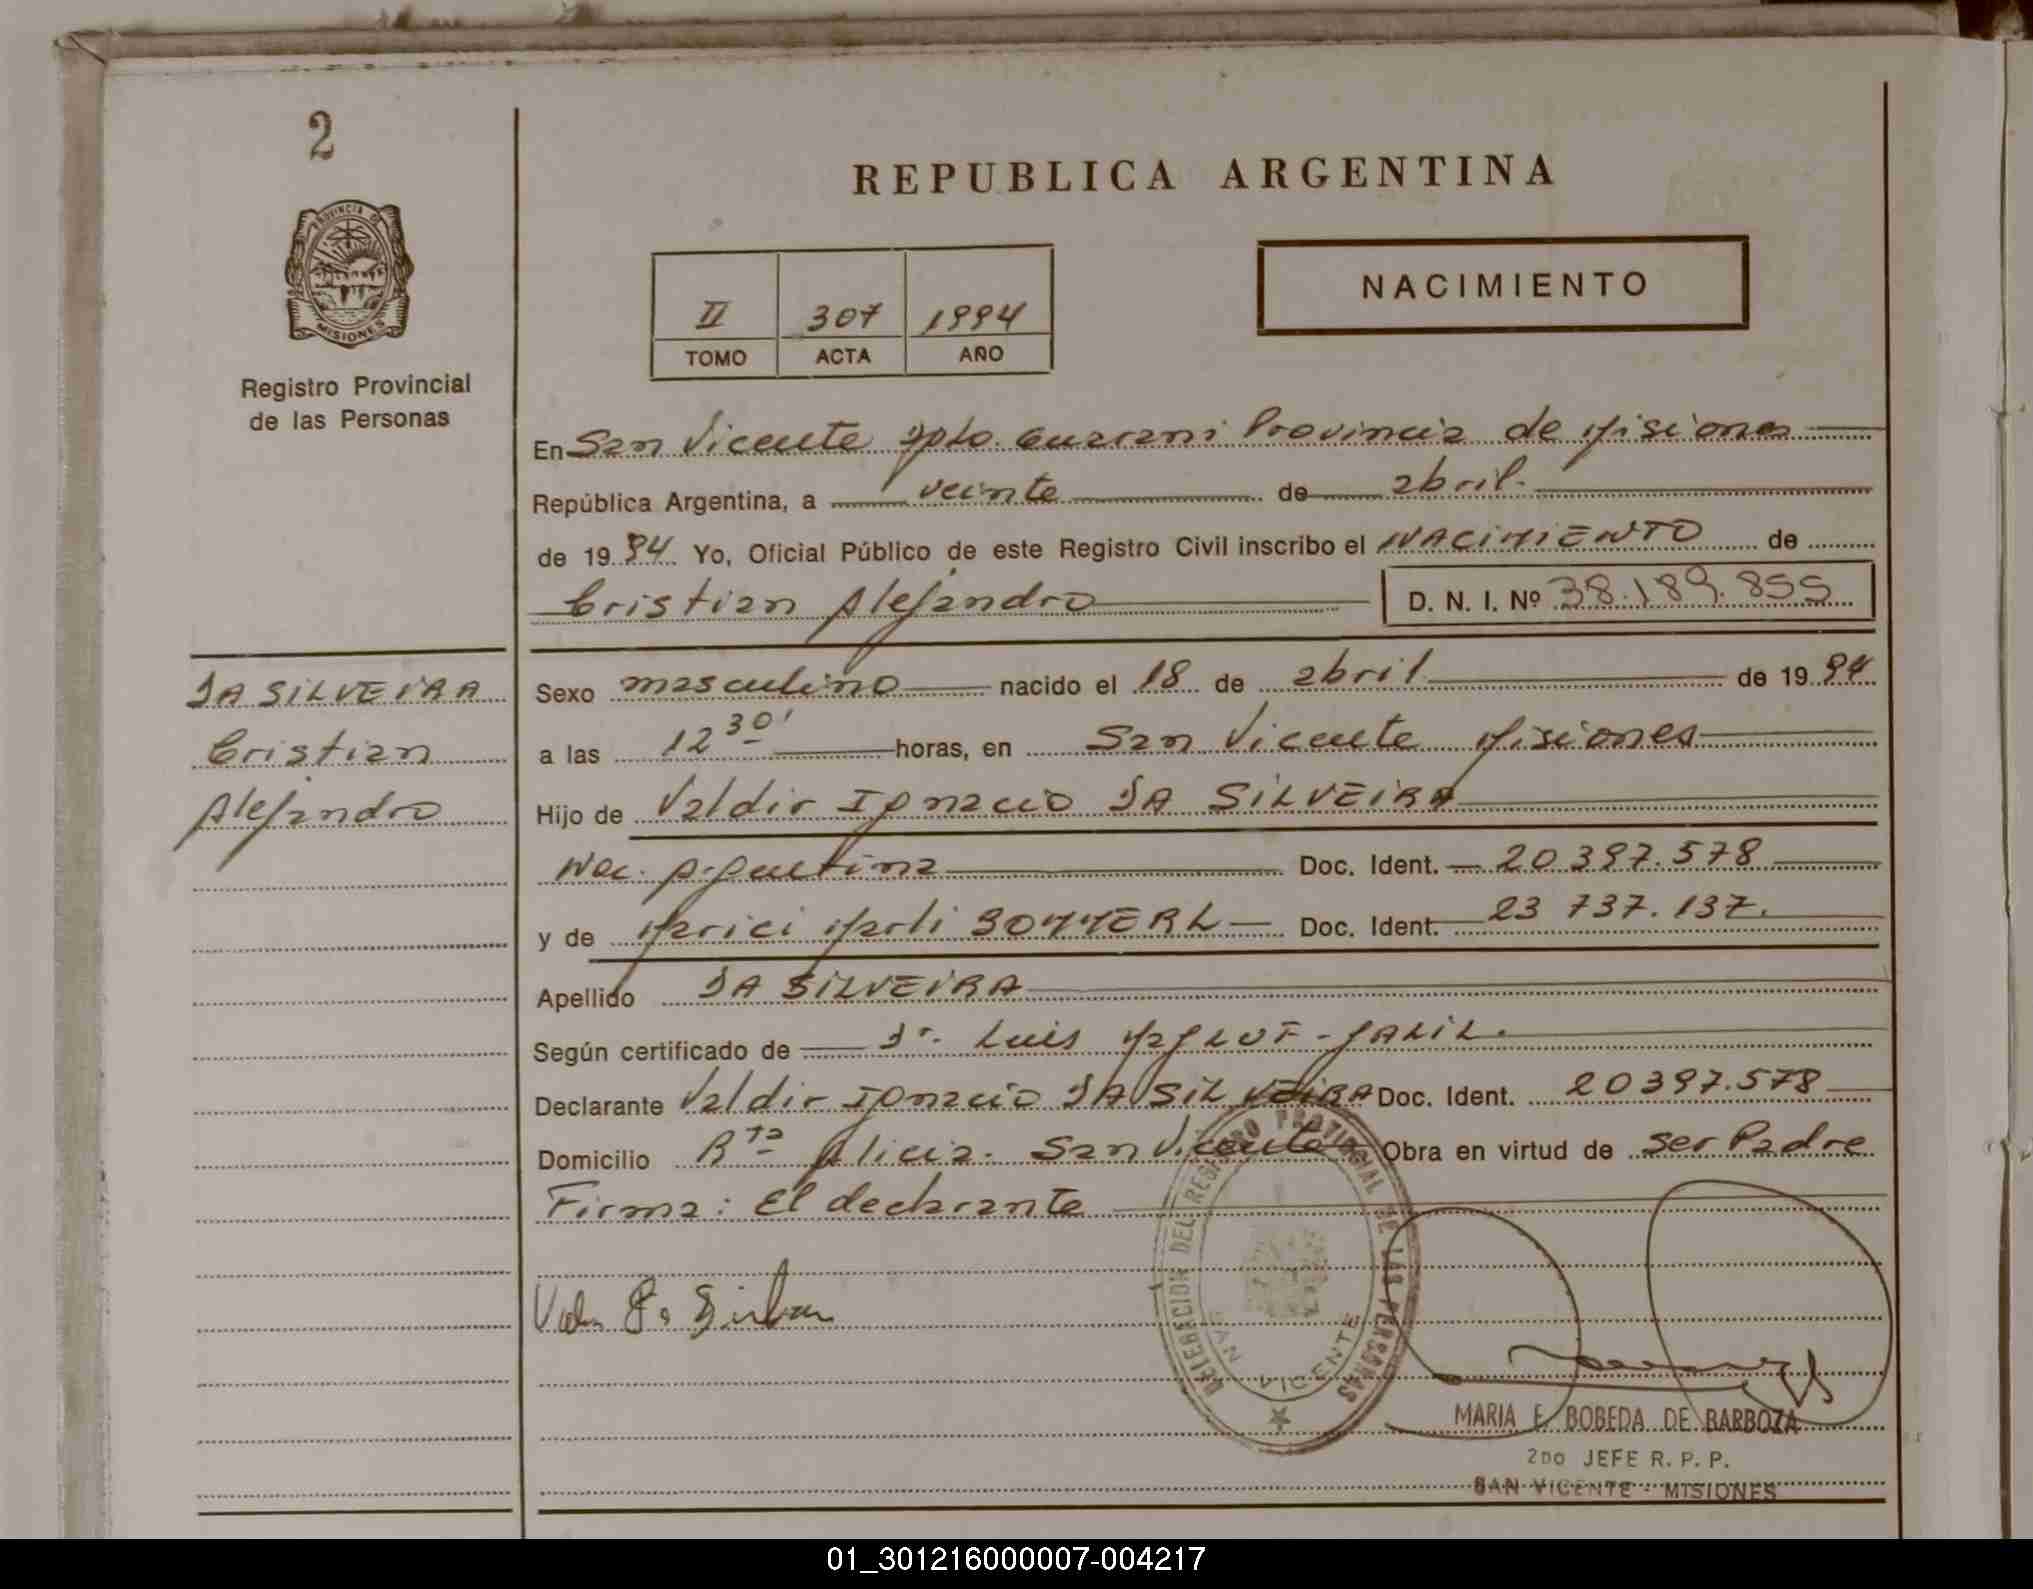 2
PROVINCIA DE
MISIONES
Registro Provincial
de las Personas
REPUBLICA ARGENTINA
II 307 1994
TOMO ACTA AÑO
NACIMIENTO
En San Vicente Dpto. Guarani Provincia de Misiones
República Argentina, a veinte de abril.
de 1994. Yo, Oficial Público de este Registro Civil inscribo el NACIMIENTO de
Cristian Alejandro D. N. I. Nº 38.189.855
DA SILVEIRA
Cristian
Alejandro
Sexo masculino nacido el 18 de abril de 1994
a las 12 30' horas, en San Vicente Misiones
Hijo de Valdir Ignacio DA SILVEIRA
Nac. Argentina Doc. Ident. 20397.578
y de Marici Marli Doc. Ident. 23 737.137.
Apellido DA SILVEIRA
Según certificado de Dr. Luis
Declarante Valdir Ignacio DA SILVEIRA Doc. Ident. 20397.578
Domicilio Rta Alicia. San Vicente Obra en virtud de ser Padre
Firma: El declarante
DELEGACION DEL REGISTRO PROVINCIAL DE LAS PERSONAS
SAN VICENTE
MARIA E. BOBEDA DE BARBOZA
2DO JEFE R. P. P.
SAN VICENTE - MISIONES
01_301216000007-004217